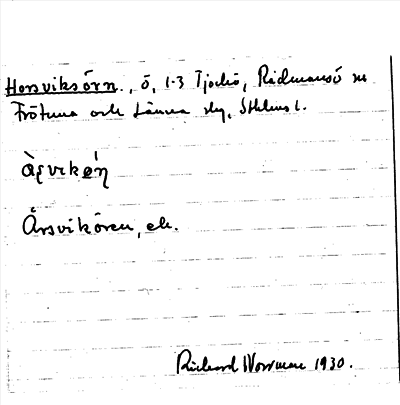 Horsviksörn., ö, 1-3 Tjockö, Rådmansö sn
Frötuna och Länna slg, Sthlms l.
Årsvikören, ek.
Rickard Norrman 1930.